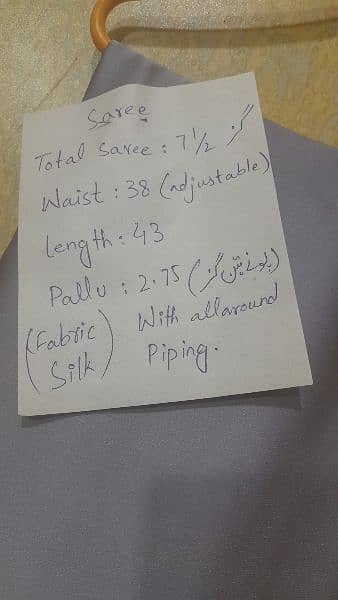 Saree
Total Saree : 7 1/2 گز
Waist : 38 (adjustable)
length : 43
Pallu : 2.75 (پونے تین گز)
(Fabric Silk) With all around
Piping.